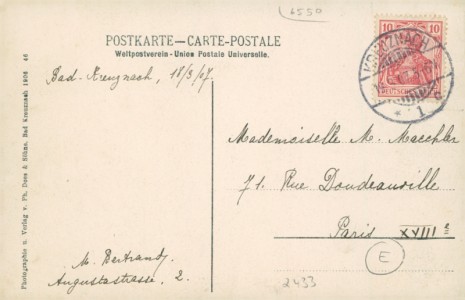 6550
POSTKARTE—CARTE-POSTALE
Weltpostverein - Union Postale Universelle.
Bad-Kreuznach, 18/3/07.
10 10
KREUZNACH
1 c
Mademoiselle M. Maechler
71. Rue Doudeauville
Paris XVIIIe
M. Bertrand,
Augustastrasse, 2.
E
2433
Photographie u. Verlag v. Ph. Dees & Böhm, Bad Kreuznach 1906 46